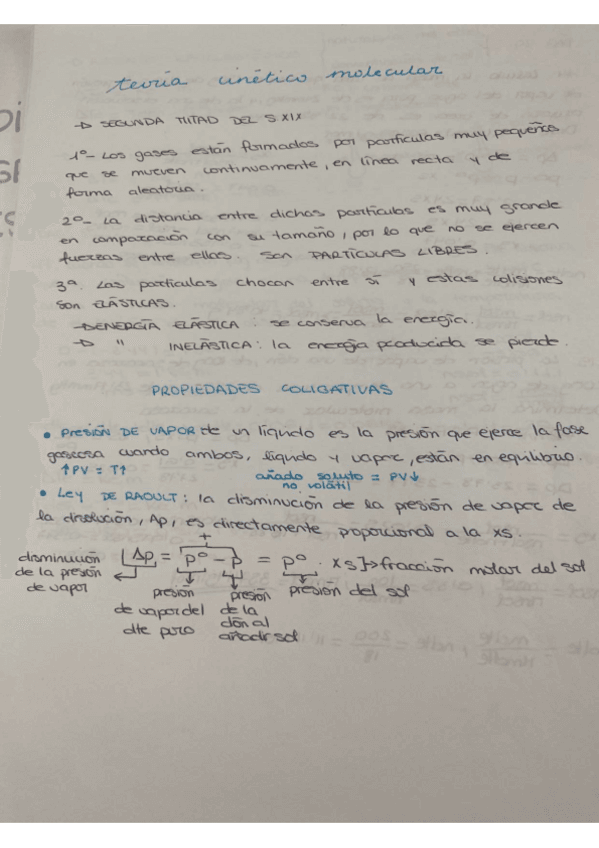 teoría cinético molecular
→ SEGUNDA MITAD DEL S XIX
1º- Los gases están formados por partículas muy pequeñas
que se mueven continuamente, en línea recta y de
forma aleatoria.
2º- La distancia entre dichas partículas es muy grande
en comparación con su tamaño, por lo que no se ejercen
fuerzas entre ellas. Son PARTÍCULAS LIBRES.
3º. Las partículas chocan entre sí y estas colisiones
son ELÁSTICAS.
→ ENERGÍA ELÁSTICA: se conserva la energía.
→ " INELÁSTICA: la energía producida se pierde.
PROPIEDADES COLIGATIVAS
• PRESIÓN DE VAPOR: de un líquido es la presión que ejerce la fase
gaseosa cuando ambos, líquido y vapor, están en equilibrio.
↑PV = T↑ añado soluto = PV↓
no volátil
• LEY DE RAOULT: la disminución de la presión de vapor de
la disolución, Δp, es directamente proporcional a la xs.
+
disminución Δp = pº - p = pº · xs → fracción molar del sol
de la presión
de vapor presión presión presión del sol
de vapor del de la
dte puro dón al
añadir sol